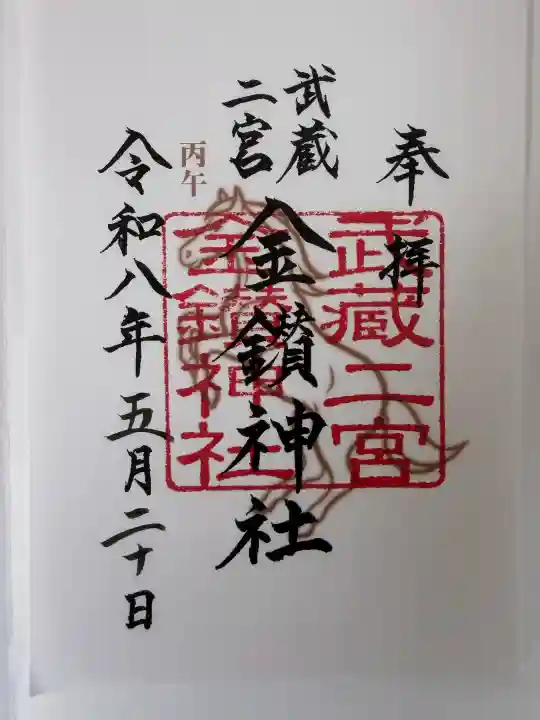 奉拝
武蔵
二宮
金鑚神社
丙午
令和八年五月二十日
武蔵二宮
金鑚神社